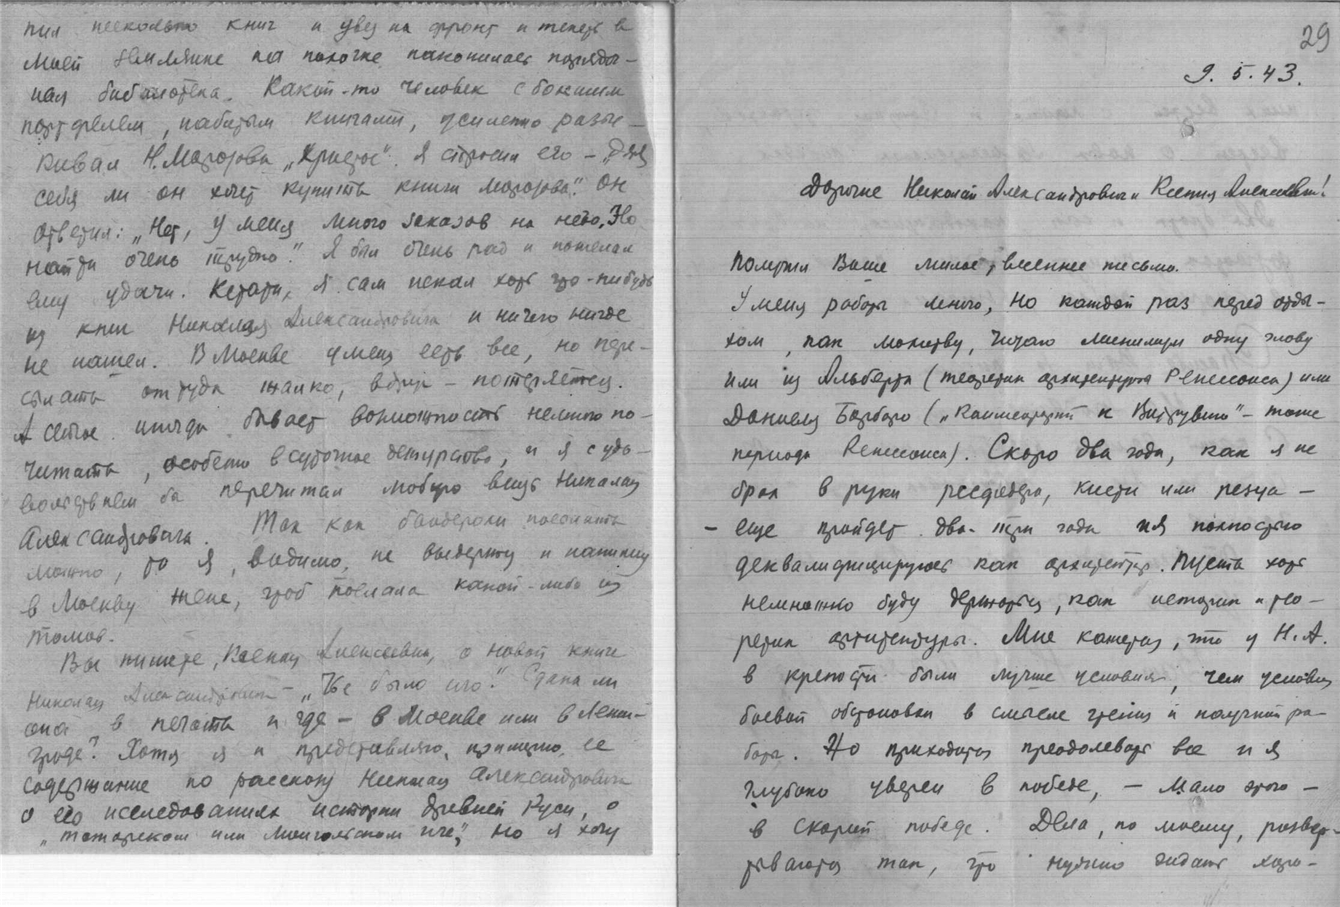 пил несколько книг и увез на фронт и теперь в
моей землянке на полочке накопилась порядоч-
ная библиотека. Какой-то человек с большим
портфелем, набитым книгами, усиленно разыс-
кивал Н. Морозова „Христос". Я спросил его – „Для
себя ли он хочет купить книги Морозова". Он
ответил: „Нет, у меня много заказов на него. Но
найти очень трудно". Я был очень рад и пожелал
ему удачи. Кстати, я сам искал хоть что-нибудь
из книг Николая Александровича и ничего нигде
не нашел. В Москве у меня есть все, но пере-
сылать оттуда жалко, вдруг – потеряется.
А сейчас иногда бывает возможность немного по-
читать, особенно в суточное дежурство, и я с удо-
вольствием бы перечитал любую вещь Николая
Александровича. Так как бандероли посылать
можно, то я, видимо, не выдержу и напишу
в Москву жене, чтоб послала какой-либо из
томов.
Вы пишете, Ксения Алексеевна, о новой книге
Николая Александровича – „Не было иго". Сдана ли
она в печать и где – в Москве или в Ленин-
граде? Хотя я и представляю, примерно, ее
содержание по рассказу Николая Александровича
о его исследованиях истории древней Руси, о
„татарском или монгольском иге", но я хочу
29
9. 5. 43.
Дорогие Николай Александрович и Ксения Алексеевна!
Получил Ваше милое, весеннее письмо.
У меня работы много, но каждый раз перед отды-
хом, как молитву, читаю минимум одну главу
или из Альберти (теоретик архитектуры Ренессанса) или
Даниеля Барбаро („Комментарий к Витрувию" – тоже
периода Ренессанса). Скоро два года, как я не
брал в руки рейсфедера, кисти или резца –
– еще пройдет два-три года и я полностью
деквалифицируюсь как архитектор. Пусть хоть
немножко буду держаться, как историк и тео-
ретик архитектуры. Мне кажется, что у Н. А.
в крепости были лучше условия, чем условия
боевой обстановки в смысле чтения и научной ра-
боты. Но приходится преодолевать все и я
глубоко уверен в победе, – мало этого –
в скорой победе. Дела, по моему, развер-
тываются так, что нужно ждать хоро-